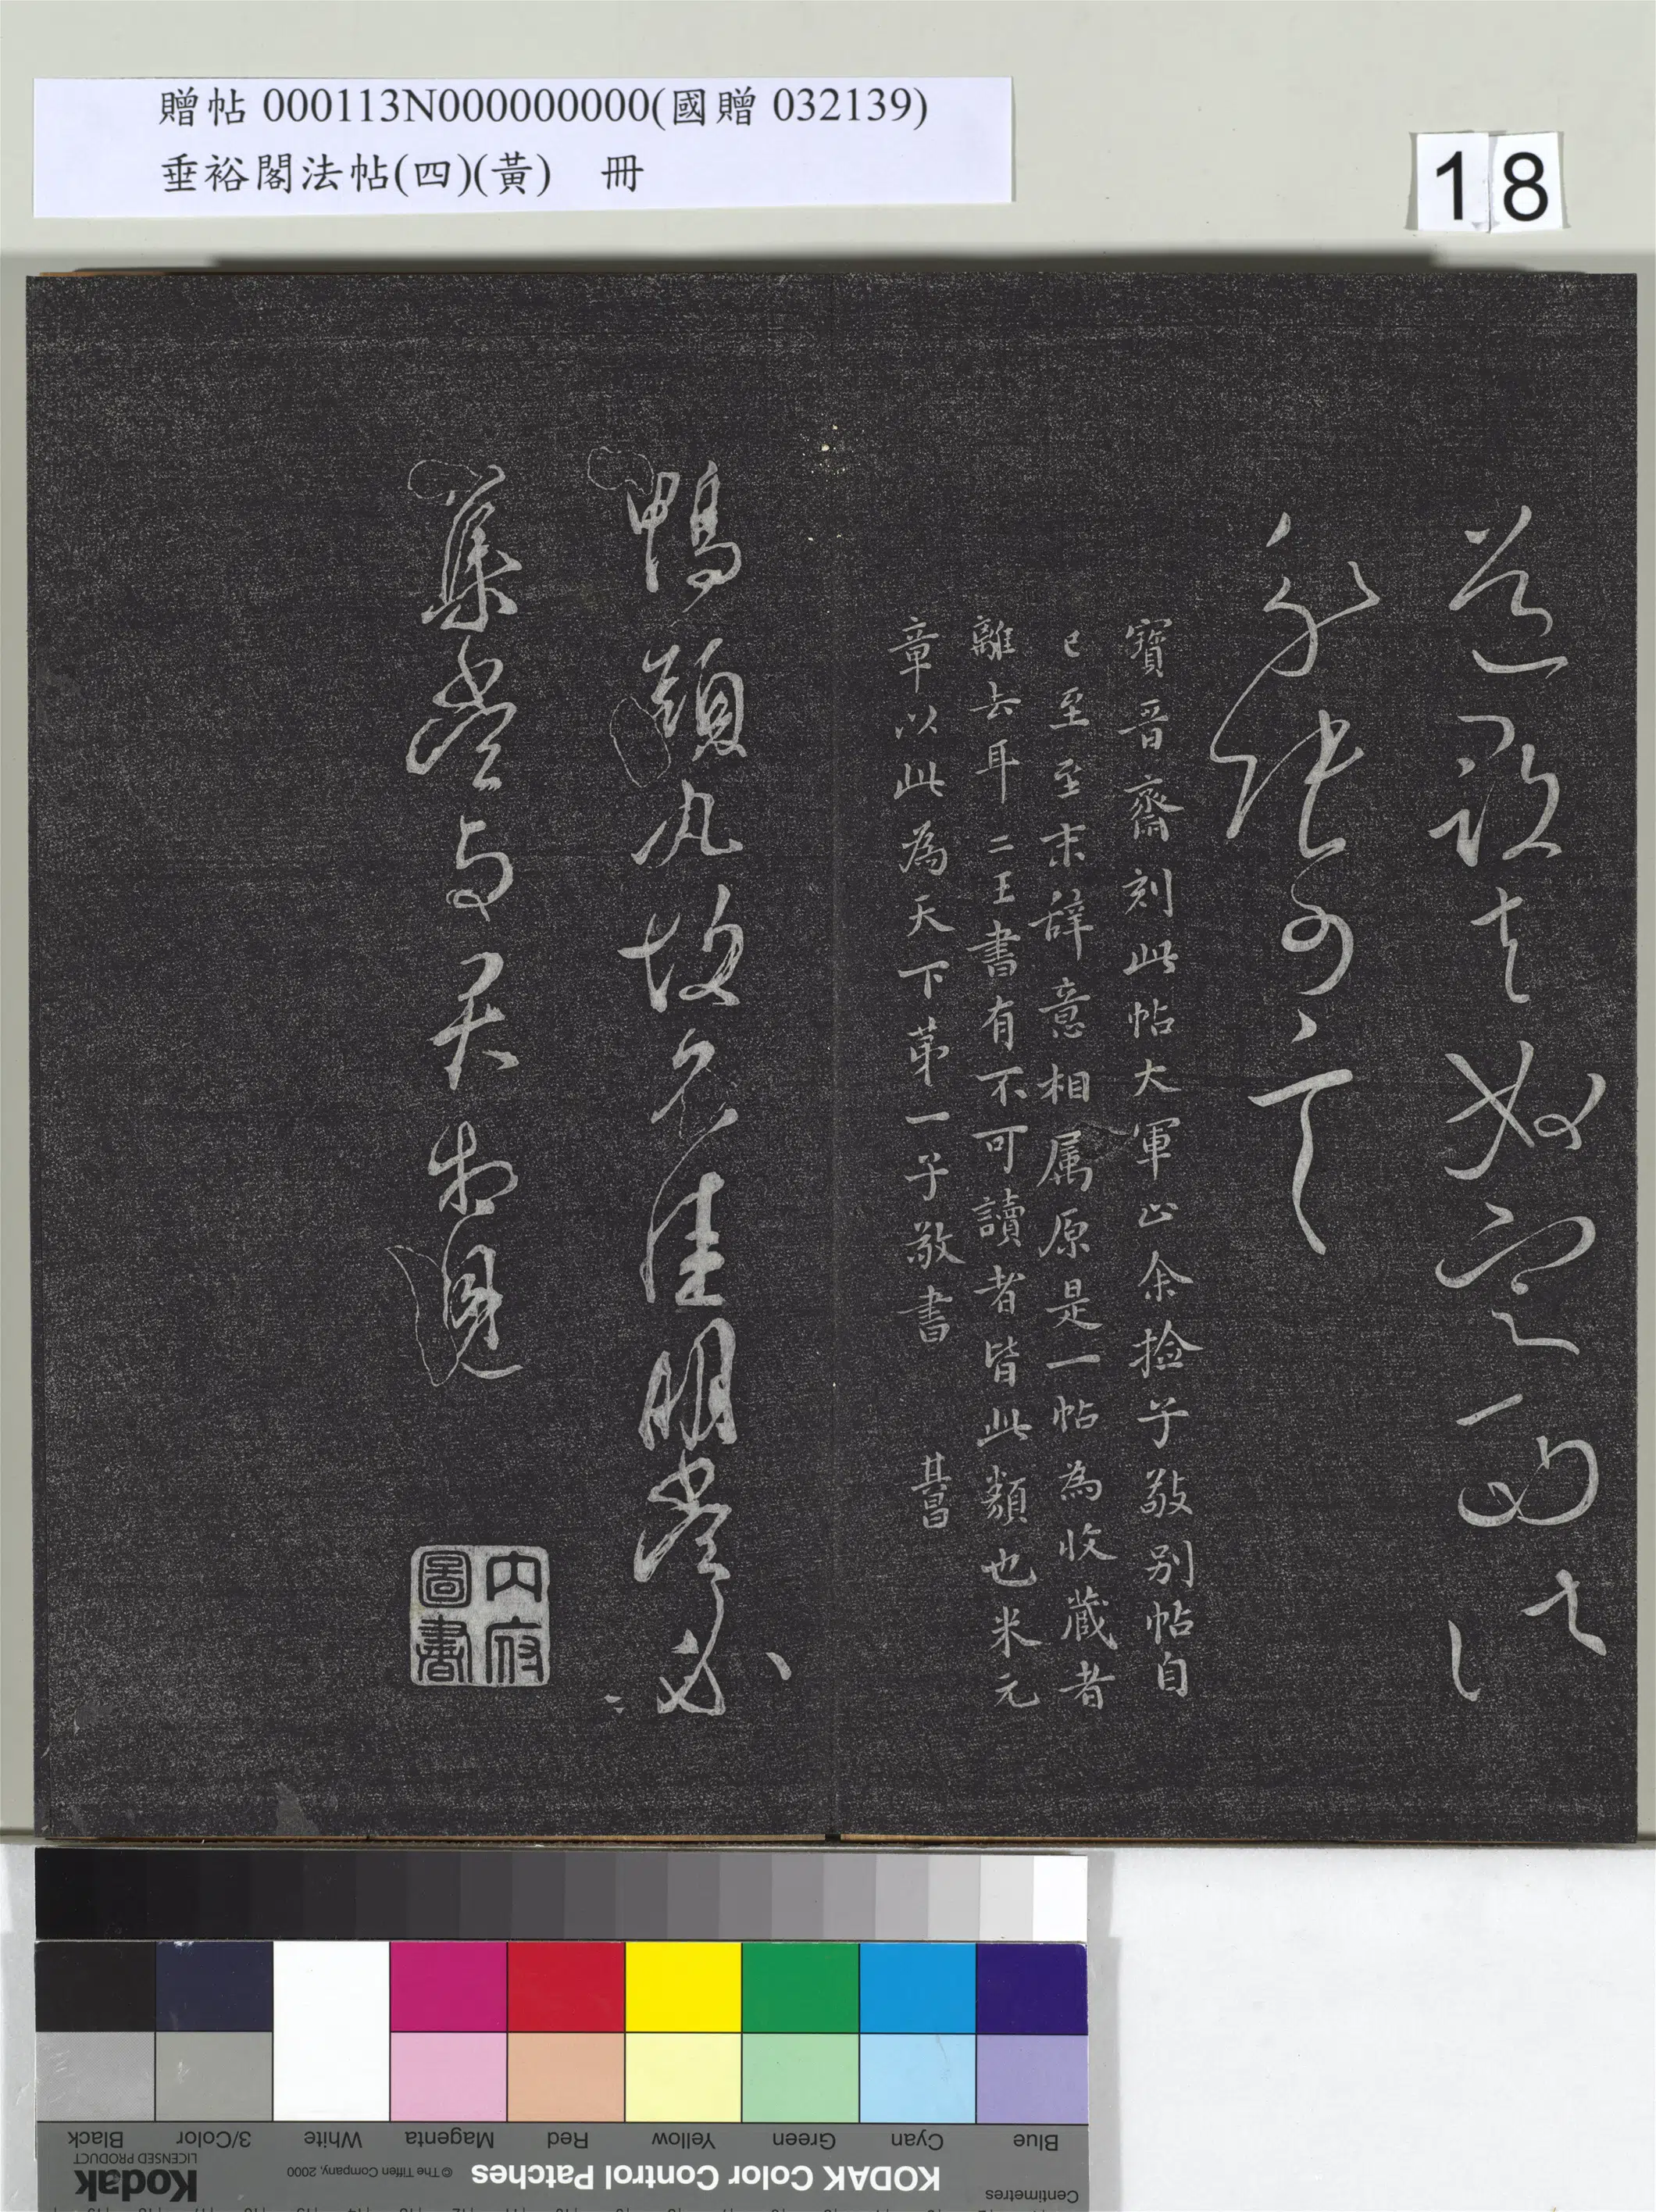 贈帖 000113N000000000(國贈 032139)
垂裕閣法帖(四)(黃) 冊
18
奴定西
分張可言
寶晉齋刻此帖大軍止余撿子敬別帖自
已至至末辞意相属原是一帖為收藏者
離去耳二王書有不可讀者皆此類也米元
章以此為天下苐一子敬書 其昌
鴨頭丸故不佳明當必
集當与君相見
內府
圖書
KODAK Color Control Patches
© The Tiffen Company, 2000
Kodak
LICENSED PRODUCT
Centimetres
Blue Cyan Green Yellow Red Magenta White 3/Color Black